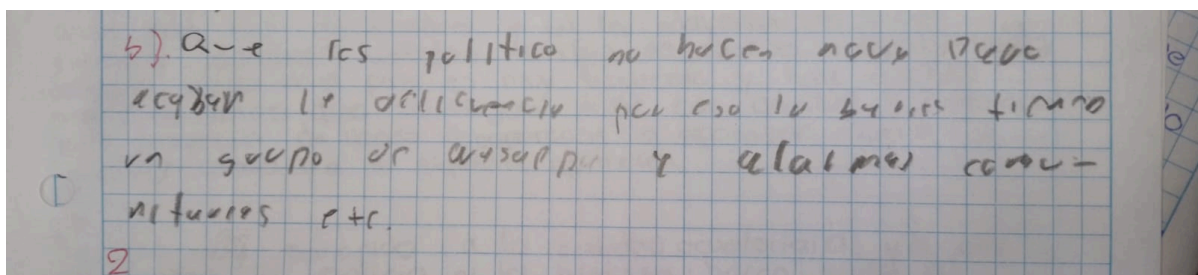 b). Que los politico no hacen nada para
acabar la delicuencia por eso la tiene
un grupo de wasapp y alarmas comu-
nitarias etc.
2